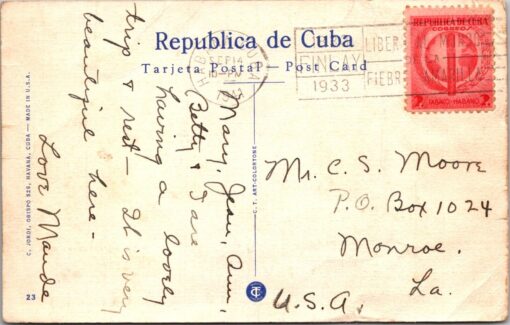 Republica de Cuba
Tarjeta Postal — Post Card
SEP 14
FINLAY
1933
LIBER
FIEBR
REPUBLICA DE CUBA
CORREOS
TABACO-HABANO
2
Mary, Jean, Ann,
Betty & I are
having a lovely
trip & rest — It is very
beautiful here —
Love Maude
Mr. C. S. Moore
P.O. Box 1024
Monroe.
La.
U.S.A.
C. T. ART-COLORTONE
C. JORDI, OBISPO 529, HAVANA, CUBA — MADE IN U.S.A.
23